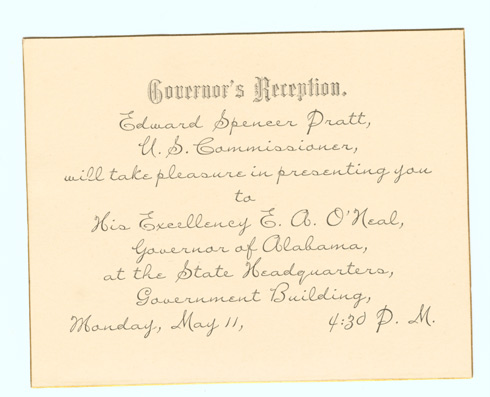 Governor's Reception.
Edward Spencer Pratt,
U. S. Commissioner,
will take pleasure in presenting you
to
His Excellency E. A. O'Neal,
Governor of Alabama,
at the State Headquarters,
Government Building,
Monday, May 11, 4:30 P. M.